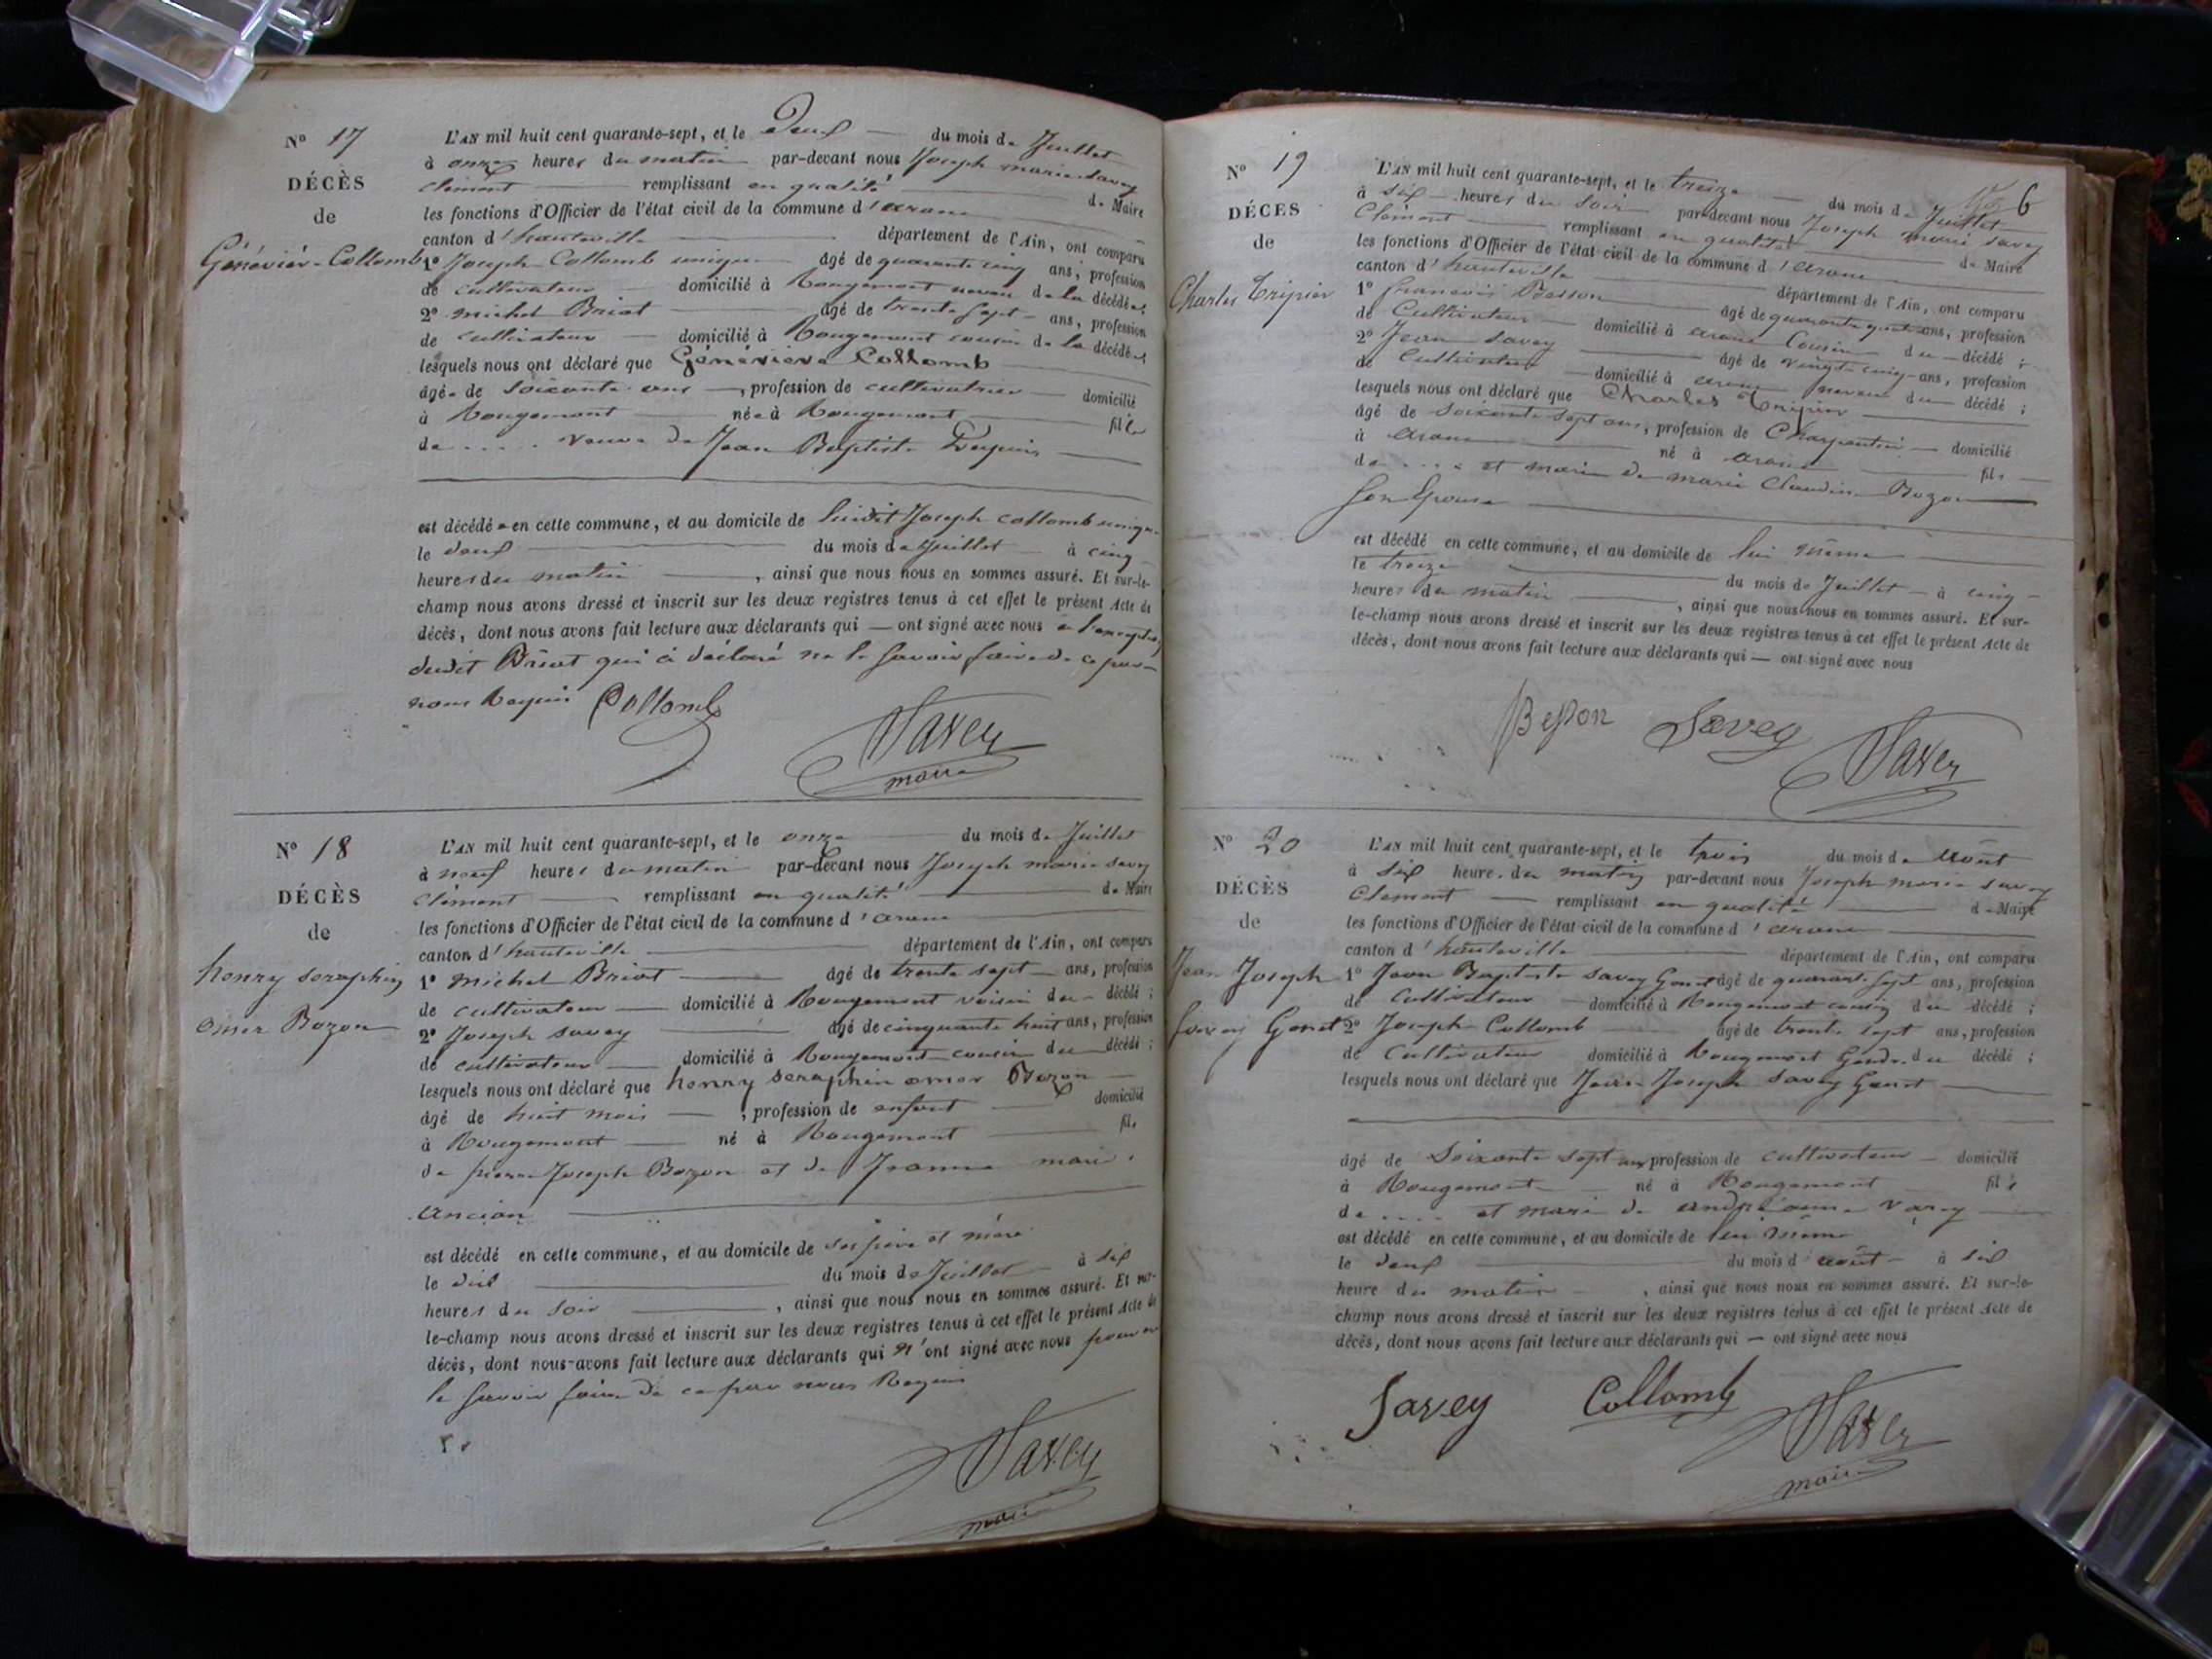 N° 17
DÉCÈS
de
Généviév-Collomb
L'AN mil huit cent quarante-sept, et le Deux du mois de Juillet
à onze heures du matin par-devant nous Joseph marie Savey
Clément remplissant en qualité de Maire
les fonctions d'Officier de l'état civil de la commune d'arane
canton d'hauteville département de l'Ain, ont comparu
1° Joseph Collomb unique âgé de quarante cinq ans, profession
de cultivateur domicilié à Rougemont neveu de la décédée;
2° michel Briot âgé de trente sept ans, profession
de cultivateur domicilié à Rougemont cousin de la décédée;
lesquels nous ont déclaré que Généviève Collomb
âgée de soixante ans, profession de cultivatrice domicilié
à Rougemont née à Rougemont fille
de .... veuve de Jean Baptiste
est décédée en cette commune, et au domicile de Joseph collomb unique
le deux du mois de Juillet à cinq
heures du matin, ainsi que nous nous en sommes assuré. Et sur-le-
champ nous avons dressé et inscrit sur les deux registres tenus à cet effet le présent Acte de
décès, dont nous avons fait lecture aux déclarants qui — ont signé avec nous à l'exception
dudit Briot qui à déclaré ne le savoir faire de ce par
nous Requis Collomb
Savey
maire
N° 18
DÉCÈS
de
henry seraphin
omer Bozon
L'AN mil huit cent quarante-sept, et le onze du mois de Juillet
à neuf heures du matin par-devant nous Joseph marie savey
Clément remplissant en qualité de Maire
les fonctions d'Officier de l'état civil de la commune d'arane
canton d'hauteville département de l'Ain, ont comparu
1° michel Briot âgé de trente sept ans, profession
de cultivateur domicilié à Rougemont voisin du décédé;
2° Joseph savey âgé de cinquante huit ans, profession
de cultivateur domicilié à Rougemont cousin du décédé;
lesquels nous ont déclaré que henry seraphin omer Bozon
âgé de huit mois, profession de enfant domicilié
à Rougemont né à Rougemont fils
de pierre Joseph Bozon et de Jeanne marie
Ancian
est décédé en cette commune, et au domicile de ses père et mère
le dix du mois de Juillet à six
heures du soir, ainsi que nous nous en sommes assuré. Et sur-
le-champ nous avons dressé et inscrit sur les deux registres tenus à cet effet le présent Acte de
décès, dont nous avons fait lecture aux déclarants qui n'ont signé avec nous pour ne
le savoir faire de ce par nous Requis
Savey
maire
6
N° 19
DÉCÈS
de
Charles Tripier
L'AN mil huit cent quarante-sept, et le treize du mois de Juillet
à six heures du soir par-devant nous Joseph marie savey
Clément remplissant en qualité de Maire
les fonctions d'Officier de l'état civil de la commune d'arane
canton d'hauteville département de l'Ain, ont comparu
1° francois Besson âgé de quarante ans, profession
de Cultivateur domicilié à arane Cousin du décédé;
2° Jean Savey âgé de vingt cinq ans, profession
de Cultivateur domicilié à arane neveu du décédé;
lesquels nous ont déclaré que Charles Tripier
âgé de soixante sept ans, profession de Charpentier domicilié
à arane né à arane fils
de .... et mari de marie Claudine Bozon
son Epouse
est décédé en cette commune, et au domicile de lui même
le treize du mois de Juillet à cinq
heures du matin, ainsi que nous nous en sommes assuré. Et sur-
le-champ nous avons dressé et inscrit sur les deux registres tenus à cet effet le présent Acte de
décès, dont nous avons fait lecture aux déclarants qui — ont signé avec nous
Besson Savey Savey
N° 20
DÉCÈS
de
Jean Joseph
Savey Gonet
L'AN mil huit cent quarante-sept, et le trois du mois de Août
à six heure du matin par-devant nous Joseph marie savey
Clement remplissant en qualité de Maire
les fonctions d'Officier de l'état civil de la commune d'arane
canton d'hauteville département de l'Ain, ont comparu
1° Jean Baptiste savey Gonet âgé de quarante sept ans, profession
de Cultivateur domicilié à Rougemont cousin du décédé;
2° Joseph Collomb âgé de trente sept ans, profession
de Cultivateur domicilié à Rougemont Gendre du décédé;
lesquels nous ont déclaré que Jean Joseph Savey Gonet
âgé de Soixante sept ans profession de cultivateur domicilié
à Rougemont né à Rougemont fils
de .... et mari de
est décédé en cette commune, et au domicile de lui même
le deux du mois d'août à six
heure du matin, ainsi que nous nous en sommes assuré. Et sur-le-
champ nous avons dressé et inscrit sur les deux registres tenus à cet effet le présent Acte de
décès, dont nous avons fait lecture aux déclarants qui — ont signé avec nous
Savey Collomb Savey
maire